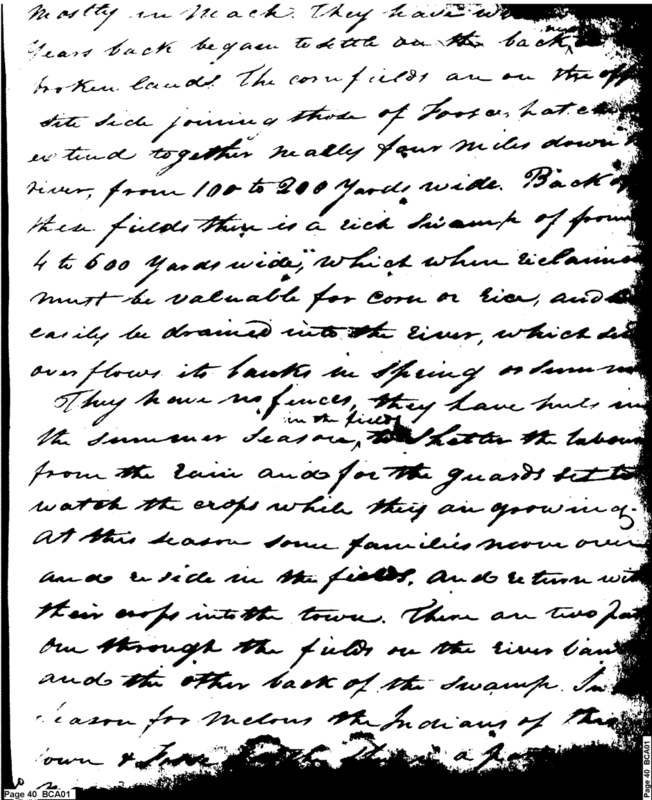 mostly in Mack. They have
Years back began to settle on the back
broken lands. The cornfields are on the opp
site side joining those of Tooseehatch
extend together neally four miles down
river, from 100 to 200 Yards wide. Back of
these fields there is a rich swamp of from
4 to 600 Yards wide, which when reclaimed
must be valuable for corn or rice, and
easily be drained into the river, which
overflows its banks in Spring or
They have no fences, they have huts in
in the fields
the summer season, to shelter the
from the rain and for the guards set to
watch the crops while they are growing.
At this season some families move over
and reside in the fields, and return with
their crops into the town. There are two
one through the fields on the river
and the other back of the swamp. In
season for melons the Indians of this
town & a
Page 40 BCA01
Page 40 BCA01